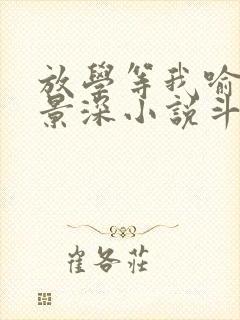 放學等我喻
景深小說斗
崔各莊